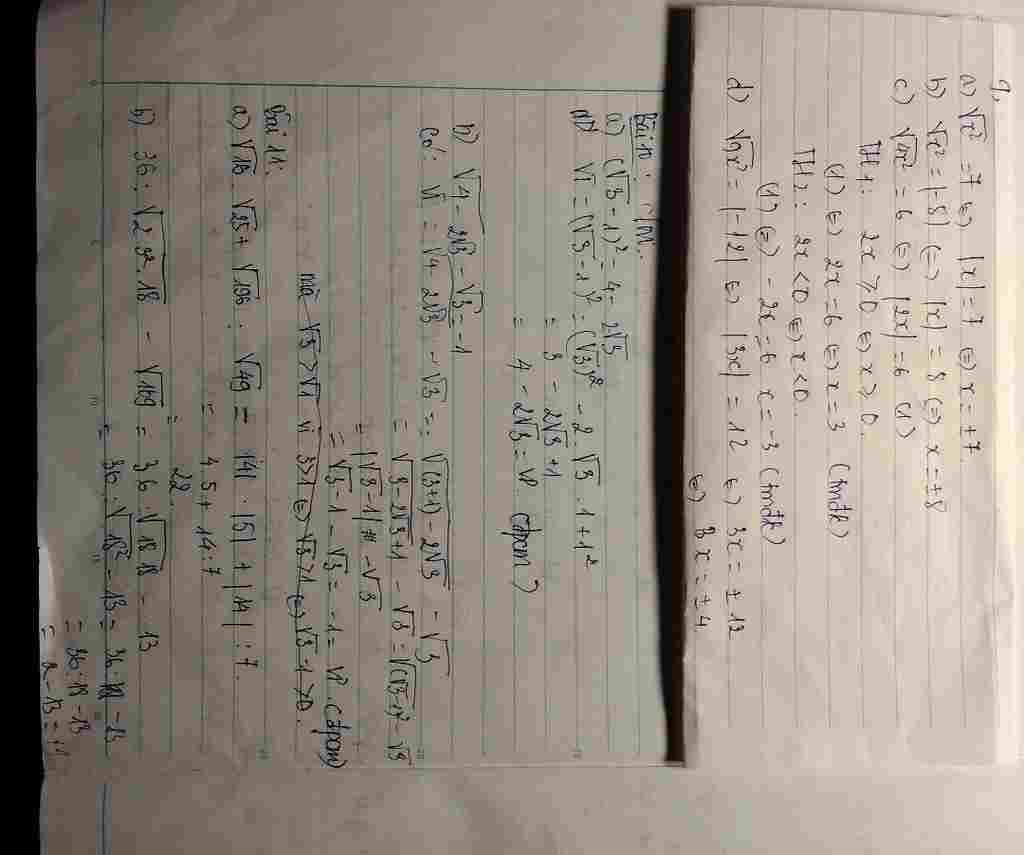 9,
a) √x² = 7 ⇔ |x| = 7 ⇔ x = ±7.
b) √x² = |-8| ⇔ |x| = 8 ⇔ x = ±8
c) √4x² = 6 ⇔ |2x| = 6 (1)
TH1: 2x ≥ 0 ⇔ x ≥ 0.
(1) ⇔ 2x = 6 ⇔ x = 3 (tmđk)
TH2: 2x < 0 ⇔ x < 0.
(1) ⇔ -2x = 6 x = -3 (tmđk)
d) √9x² = |-12| ⇔ |3x| = 12 ⇔ 3x = ±12
⇔ 3x = ±4.
Bài 10: CM.
a) (√3 - 1)² = 4 - 2√3
VT = (√3 - 1)² = (√3)² - 2.√3.1 + 1²
= 3 - 2√3 + 1
= 4 - 2√3 = VP. (đpcm)
b) √4 - 2√3 - √3 = -1
Có: VT = √4 - 2√3 - √3 = √(3+1) - 2√3 - √3
= √3 - 2√3 + 1 - √3 = √(√3 - 1)² - √3
= |√3 - 1| - √3
= √3 - 1 - √3 = -1 = VP. (đpcm)
mà √3 > √1 vì 3 > 1 ⇔ √3 > 1 ⇔ √3 - 1 > 0.
Bài 11:
a) √16 . √25 + √196 : √49 = |4| . |5| + |14| : 7.
= 4.5 + 14:7
= 22
b) 36 : √2.3².18 - √169 = 36 : √18.18 - 13
= 36 : √18² - 13 = 36 : 18 - 13
= 36 : 18 - 13
= 2 - 13 = -11